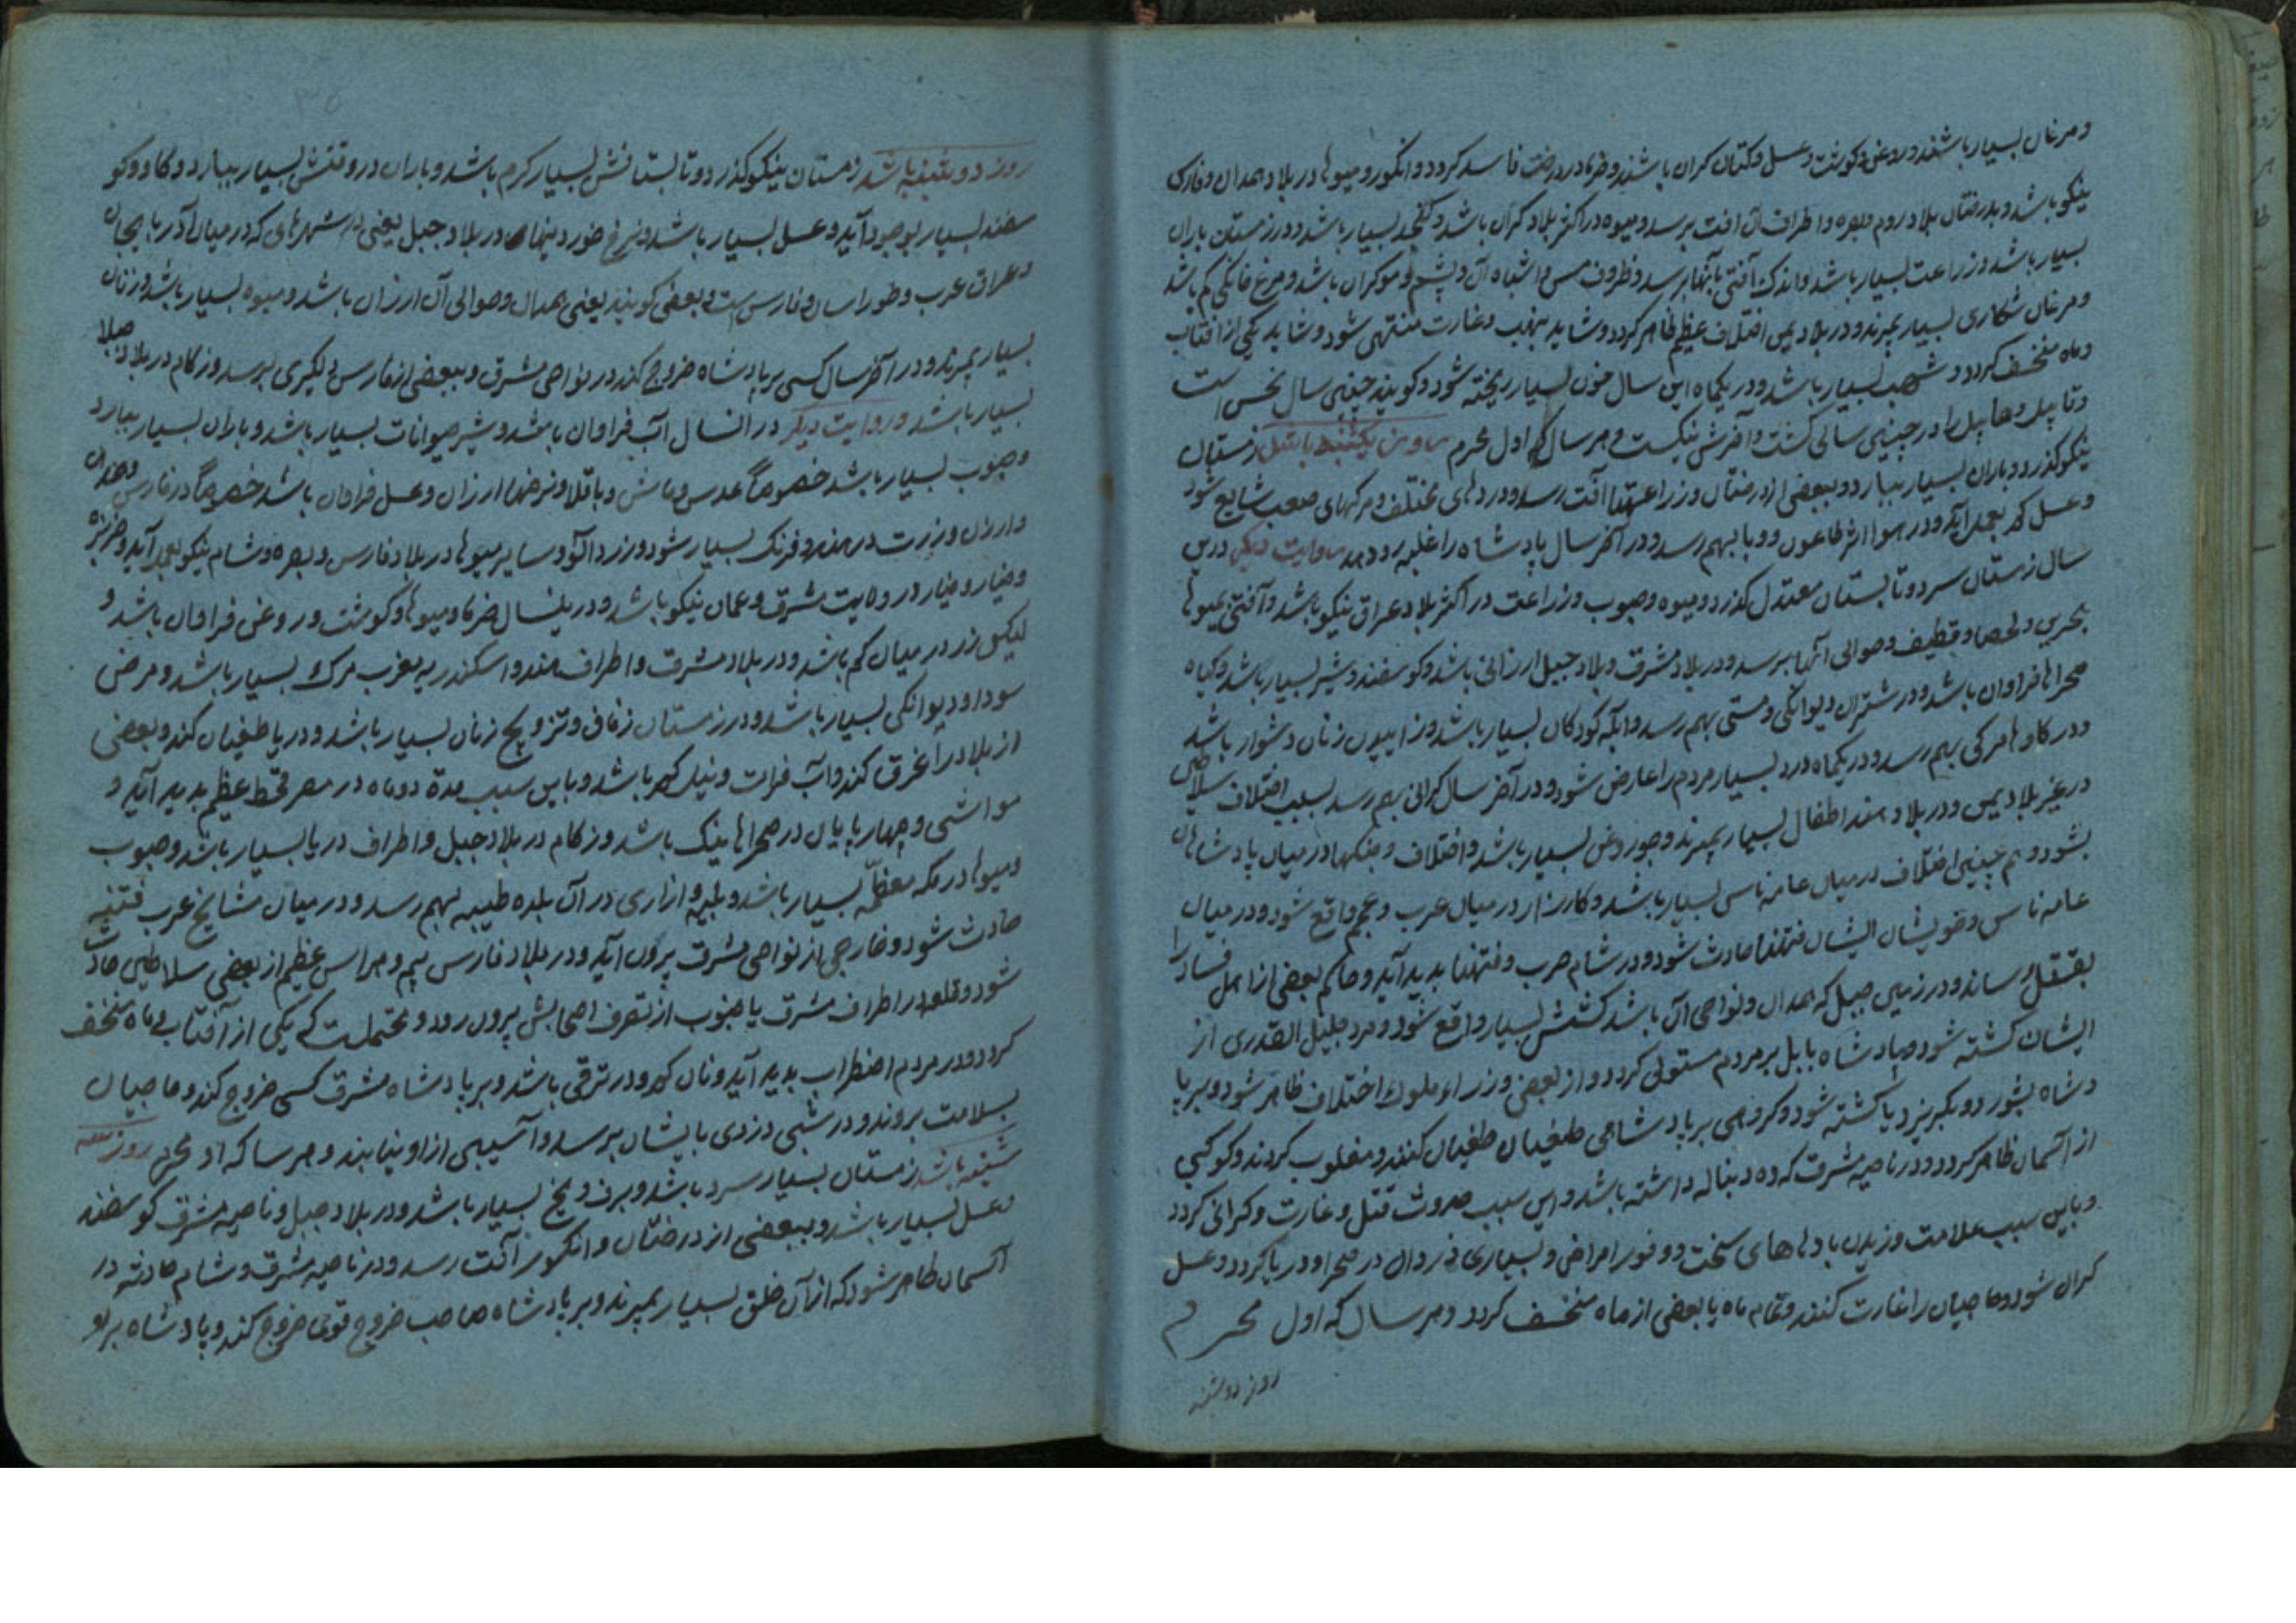 و مرغان بسیار باشند و روغن و گوشت و عسل و کتان کران باشند و خرما در درخت فاسد کردد و انکور و میوها در بلاد همدان و فارس
نیکو باشد و بدرختان بلاد روم و بصره و اطراف آن افت برسد و میوه در اکثر بلاد کران باشد و کنجد بسیار باشد و در زمستان باران
بسیار باشد و زراعت بسیار باشد و اندک آفتی بآنها برسد و ظروف مس و اشباه آن و پشم و مو کران باشد و مرغ خانکی کم باشد
و مرغان شکاری بسیار بمیرند و در بلاد یمن اختلاف عظیم ظاهر کردد و شاید بنهب و غارت منتهی شود و شاید یکی از افتاب
و ماه منخسف کردد و شهب بسیار باشد و در یکماه این سال خون بسیار ریخته شود و کویند چنین سال نحس است
و قابیل هابیل را در چنین سالی کشت و آخرش نیکست و هر سال که اول محرم روز یکشنبه باشد زمستان
نیکو کذرد و باران بسیار ببارد و ببعضی از درختان و زراعتها افت رسد و دردهای مختلف و مرکهای صعب شایع شود
و عسل کم بعمل آید و در هوا اثر طاعون و وبا بهم رسد و در آخر سال پادشاه را غلبه رو دهد روایت دیکر درین
سال زمستان سرد و تابستان معتدل کذرد و میوه و حبوب و زراعت در اکثر بلاد عراق نیکو باشد و آفتی بمیوها
بحرین و لحصا و قطیف و حوالی آنها برسد و در بلاد مشرق و بلاد جبل ارزانی باشد و کوسفند و شیر بسیار باشد و کیاه
صحراها فراوان باشد و در شتران دیوانکی و مستی بهم رسد و ابله کودکان بسیار باشد و زاییدن زنان دشوار باشد
و در کاوها مرکی بهم رسد و در یکماه درد بسیار مردم را عارض شود و در آخر سال کرانی بهم رسد بسبب اختلاف سلاطین
در غیر بلاد یمن و در بلاد هند اطفال بسیار بمیرند و جوز و روغن بسیار باشد و اختلاف و جنکها در میان پادشاهان
بشود و هم چنین اختلاف در میان عامه ناس بسیار باشد و کارزار در میان عرب و عجم واقع شود و در میان
عامه ناس و خویشان ایشان فتنها حادث شود و در شام حرب و فتنها بدید آید و حاکم بعضی از اهل فساد را
بقتل رساند و در زمین جبل که همدان و نواحی آن باشد کشش بسیار واقع شود و مرد جلیل القدری از
ایشان کشته شود و پادشاه بابل بر مردم مستولی کردد و از بعضی وزراء ملوک اختلاف ظاهر شود و بر پا
دشاه بشورد و بکریزد یا کشته شود و کروهی بر پادشاهی طغیان کنند و مغلوب کردند و کوکبی
از آسمان ظاهر کردد و در ناحیه مشرق که ده دنباله داشته باشد و این سبب حدوث قتل و غارت و کرانی کردد
و باین سبب علامت وزیدن بادهای سخت و وفور امراض و بسیاری در صحرا و دریا کردد و عسل
کران شود و حاجیان را غارت کنند و تمام ماه یا بعضی از ماه منخسف کردد و هر سال که اول محرم
روز دوشنبه
روز دوشنبه باشد زمستان نیکو کذرد و تابستانش بسیار کرم باشد و باران در وقتش بسیار ببارد و کاو و کو
سفند بسیار بوجود آید و عسل بسیار باشد و نرخ خوردنیها در بلاد جبل یعنی شهرهای که در میان آذربایجان
و عراق عرب و خوراسان و فارس ست و بعضی کویند یعنی همدان و حوالی آن ارزان باشد و میوه بسیار باشد و زنان
بسیار بمیرند و در آخر سال کسی بر پادشاه خروج کند در نواحی مشرق و ببعضی از فارس دلکیری برسد و زکام در بلاد جبل
بسیار باشد و روایت دیکر در انسال آب فراوان باشد و شیر حیوانات بسیار باشد و باران بسیار ببارد
و حبوب بسیار باشد خصوصا عدس و ماش و باقلا و نرخها ارزان و عسل فراوان باشد خصوصا در فارس و همدان
و ارزن و زرت در هند و فرنک بسیار شود و زردآلو و سایر میوها در بلاد فارس و بصره و شام نیکو بعمل آید و خربزه
و خیار در ولایت مشرق و عمان نیکو باشد و درینسال خرما و میوها و کوشت و روغن فراوان باشد و
لیکن زر در میان کم باشد و در بلاد مشرق و اطراف هند و اسکندریه مغرب مرک بسیار باشد و مرض
سودا و دیوانکی بسیار باشد و در زمستان زفاف و تزویج زنان بسیار باشد و دریا طغیان کند و بعضی
از بلاد را غرق کند و آب فرات و نیل کم باشد و باین سبب مدة دو ماه در مصر قحط عظیم بدید آید و
مواشی و چهارپایان در صحراها نیک باشد و زکام در بلاد جبل و اطراف دریا بسیار باشد و حبوب
و میوها در مکه معظمه بسیار باشد و بلیه و ازاری در آن بلده طیبه بهم رسد و در میان مشایخ عرب فتنه
حادث شود و خارجی از نواحی مشرق بیرون آید و در بلاد فارس بیم و هراس عظیم از بعضی سلاطین حادث
شود و قلعه در اطراف مشرق یا جنوب از تصرف اصحابش بیرون رود و محتملست که یکی از آفتاب و ماه منخسف
کردد و در مردم اضطراب بدید آید و نان کم و در ترقی باشد و بر پادشاه مشرق کسی خروج کند و حاجیان
بسلامت بروند و در شبی دزدی بایشان برسد و آسیبی از او نیابند و هر سا که اول محرم روز سه
شنبه باشد زمستان بسیار سرد باشد و برف و یخ بسیار باشد و در بلاد جبل و ناحیه مشرق کوسفند
و عسل بسیار باشد و ببعضی از درختان و انکور آفت رسد و در ناحیه مشرق و شام حادثه در
آسمان ظاهر شود که از آن خلق بسیار بمیرند و بر پادشاه صاحب خروج قوی خروج کند و پادشاه برو